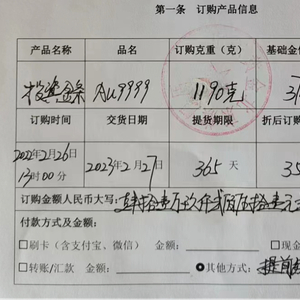 第一条 订购产品信息
产品名称 品名 订购克重（克） 基础金
投资金条 Au9999 1190克
订购时间 交货日期 提货期限 折后订购
2022年2月26日 2023年2月27日 365 天 35
13时00分
订购金额人民币大写：
付款方式及金额：
□刷卡（含支付宝、微信） 金额： □现金
□转账/汇款 金额： 其他方式：提前